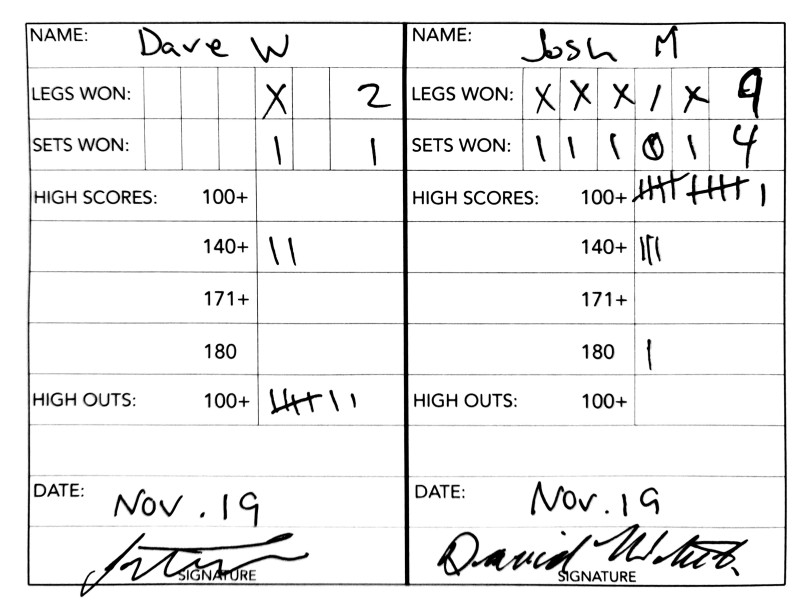 NAME: Dave W
LEGS WON: X 2
SETS WON: 1 1
HIGH SCORES: 100+
140+ ||
171+
180
HIGH OUTS: 100+ 卌 ||
DATE: Nov. 19
SIGNATURE
NAME: Josh M
LEGS WON: X X X / X 9
SETS WON: 1 1 1 0 1 4
HIGH SCORES: 100+ 卌 卌 |
140+ |||
171+
180 |
HIGH OUTS: 100+
DATE: Nov. 19
David
SIGNATURE